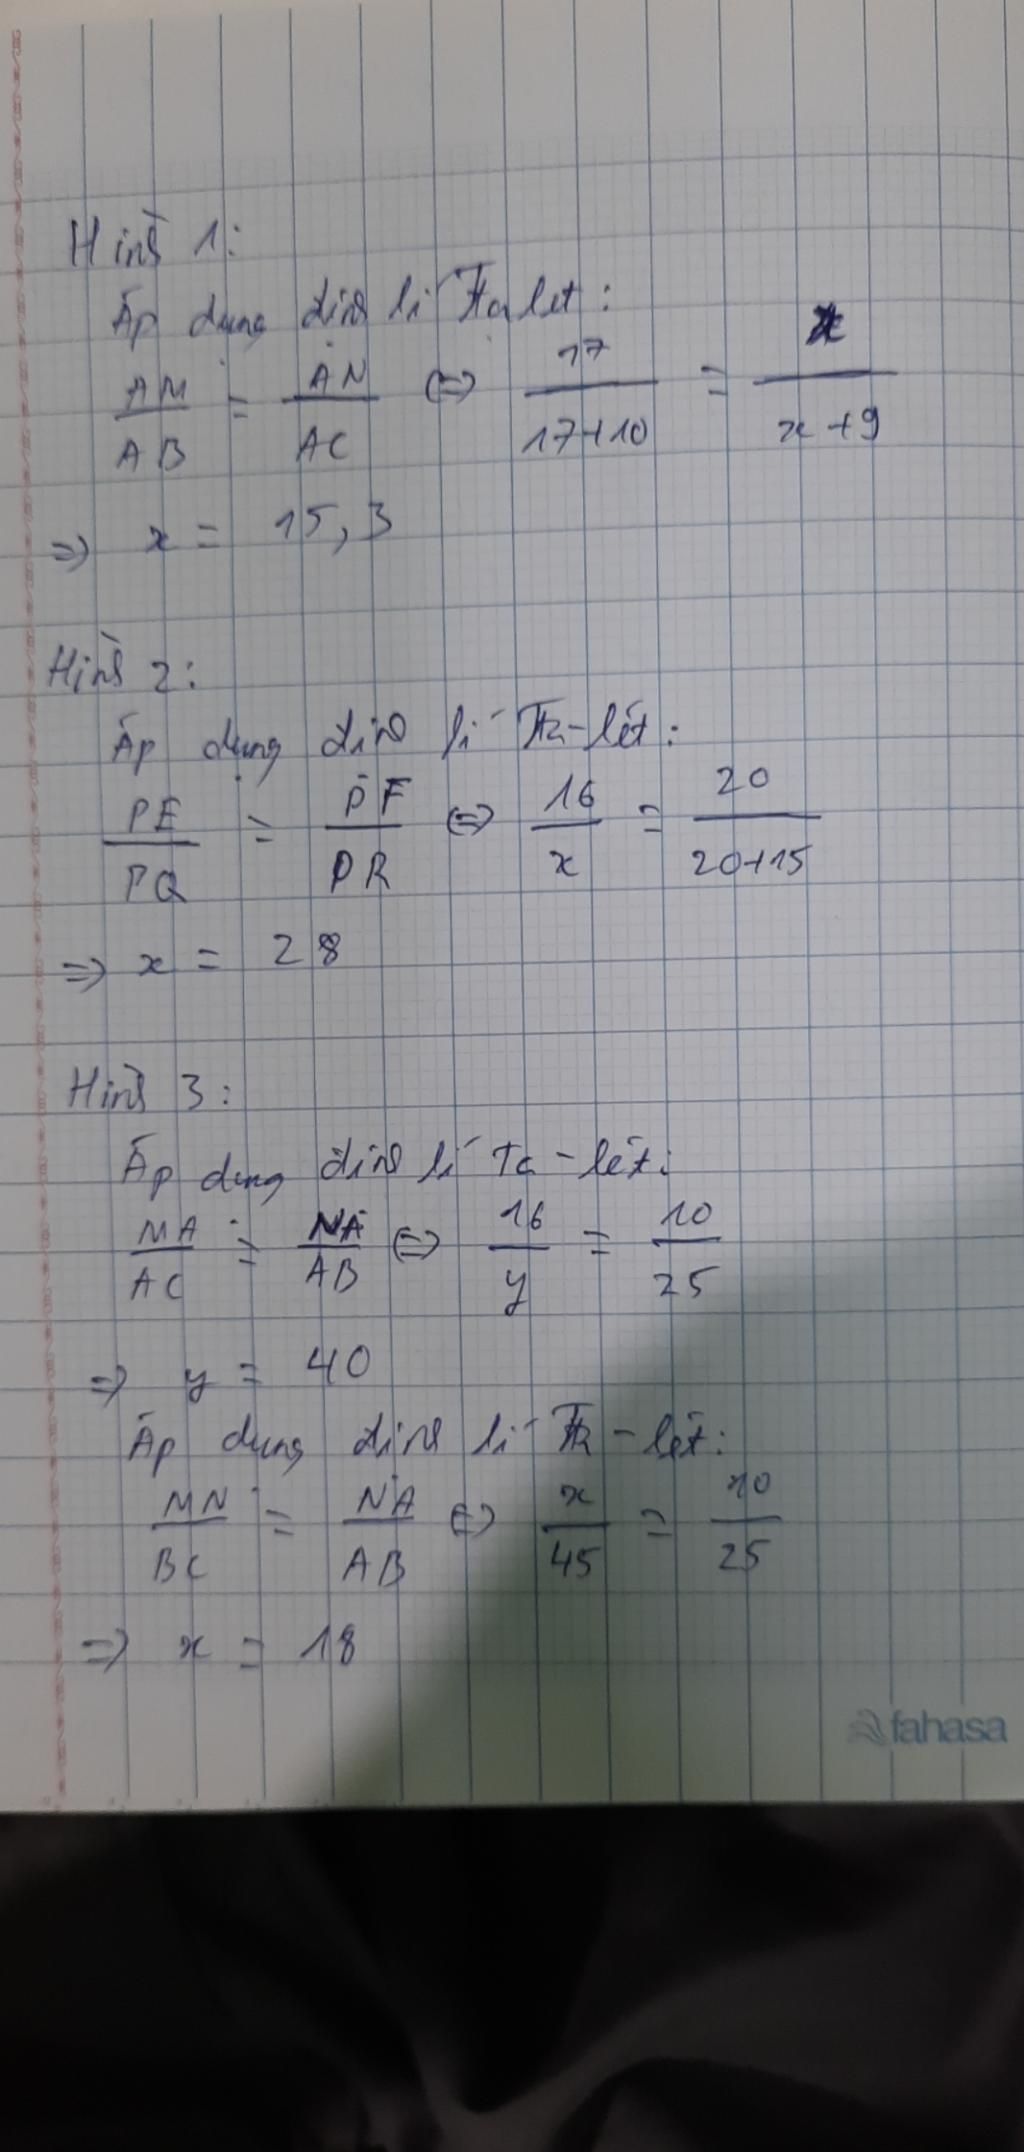 Hình 1:
Áp dụng định lí Ta let:
AM/AB = AN/AC ⇔ 17/17+10 = x/x+9
⇒ x = 15,3
Hình 2:
Áp dụng định lí Ta-lét:
PE/PQ = PF/PR ⇔ 16/x = 20/20+15
⇒ x = 28
Hình 3:
Áp dụng định lí Ta-lét:
MA/AC = NA/AB ⇔ 16/y = 10/25
⇒ y = 40
Áp dụng định lí Ta-lét:
MN/BC = NA/AB ⇔ x/45 = 10/25
⇒ x = 18
fahasa